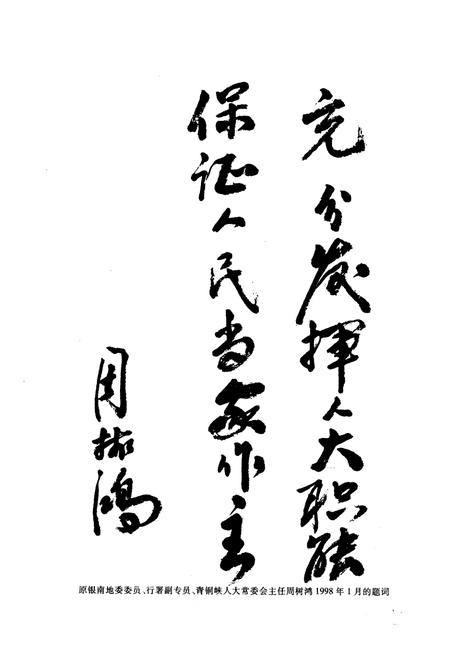 充分发挥人大职能
保证人民当家作主
周振鸿
原银南地委委员、行署副专员、青铜峡人大常委会主任周树鸿1998年1月的题词